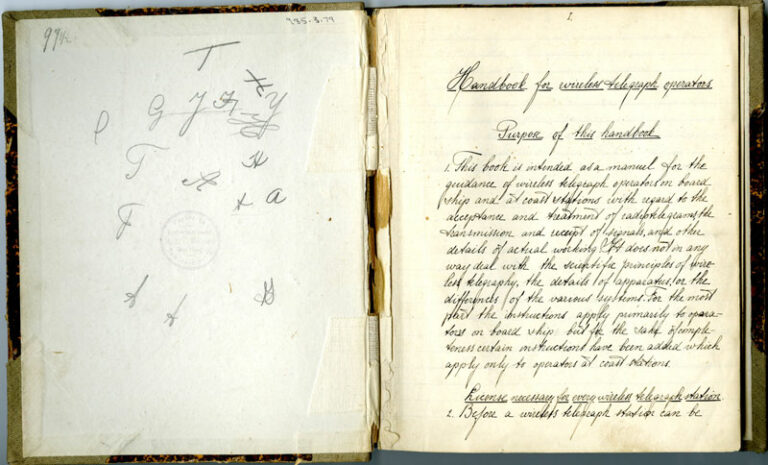 99
735-3.79
T
H Y
P G J H
T H
A
x a
F
A A B
1
Handbook for wireless telegraph operators
Purpose of this handbook
1. This book is intended as a manuel for the
guidance of wireless telegraph operators on board
ship and at coast stations with regard to the
acceptance and treatment of radiotelegrams, the
transmission and receipt of signals, and other
details of actual working. It does not in any
way deal with the scientific principles of wire-
less telegraphy, the details of apparatus, or the
differences of the various systems. For the most
part the instructions apply primarily to opera-
tors on board ship but for the sake of comple-
teness certain instructions have been added which
apply only to operators at coast stations.
License necessary for every wireless telegraph station.
2. Before a wireless telegraph station can be